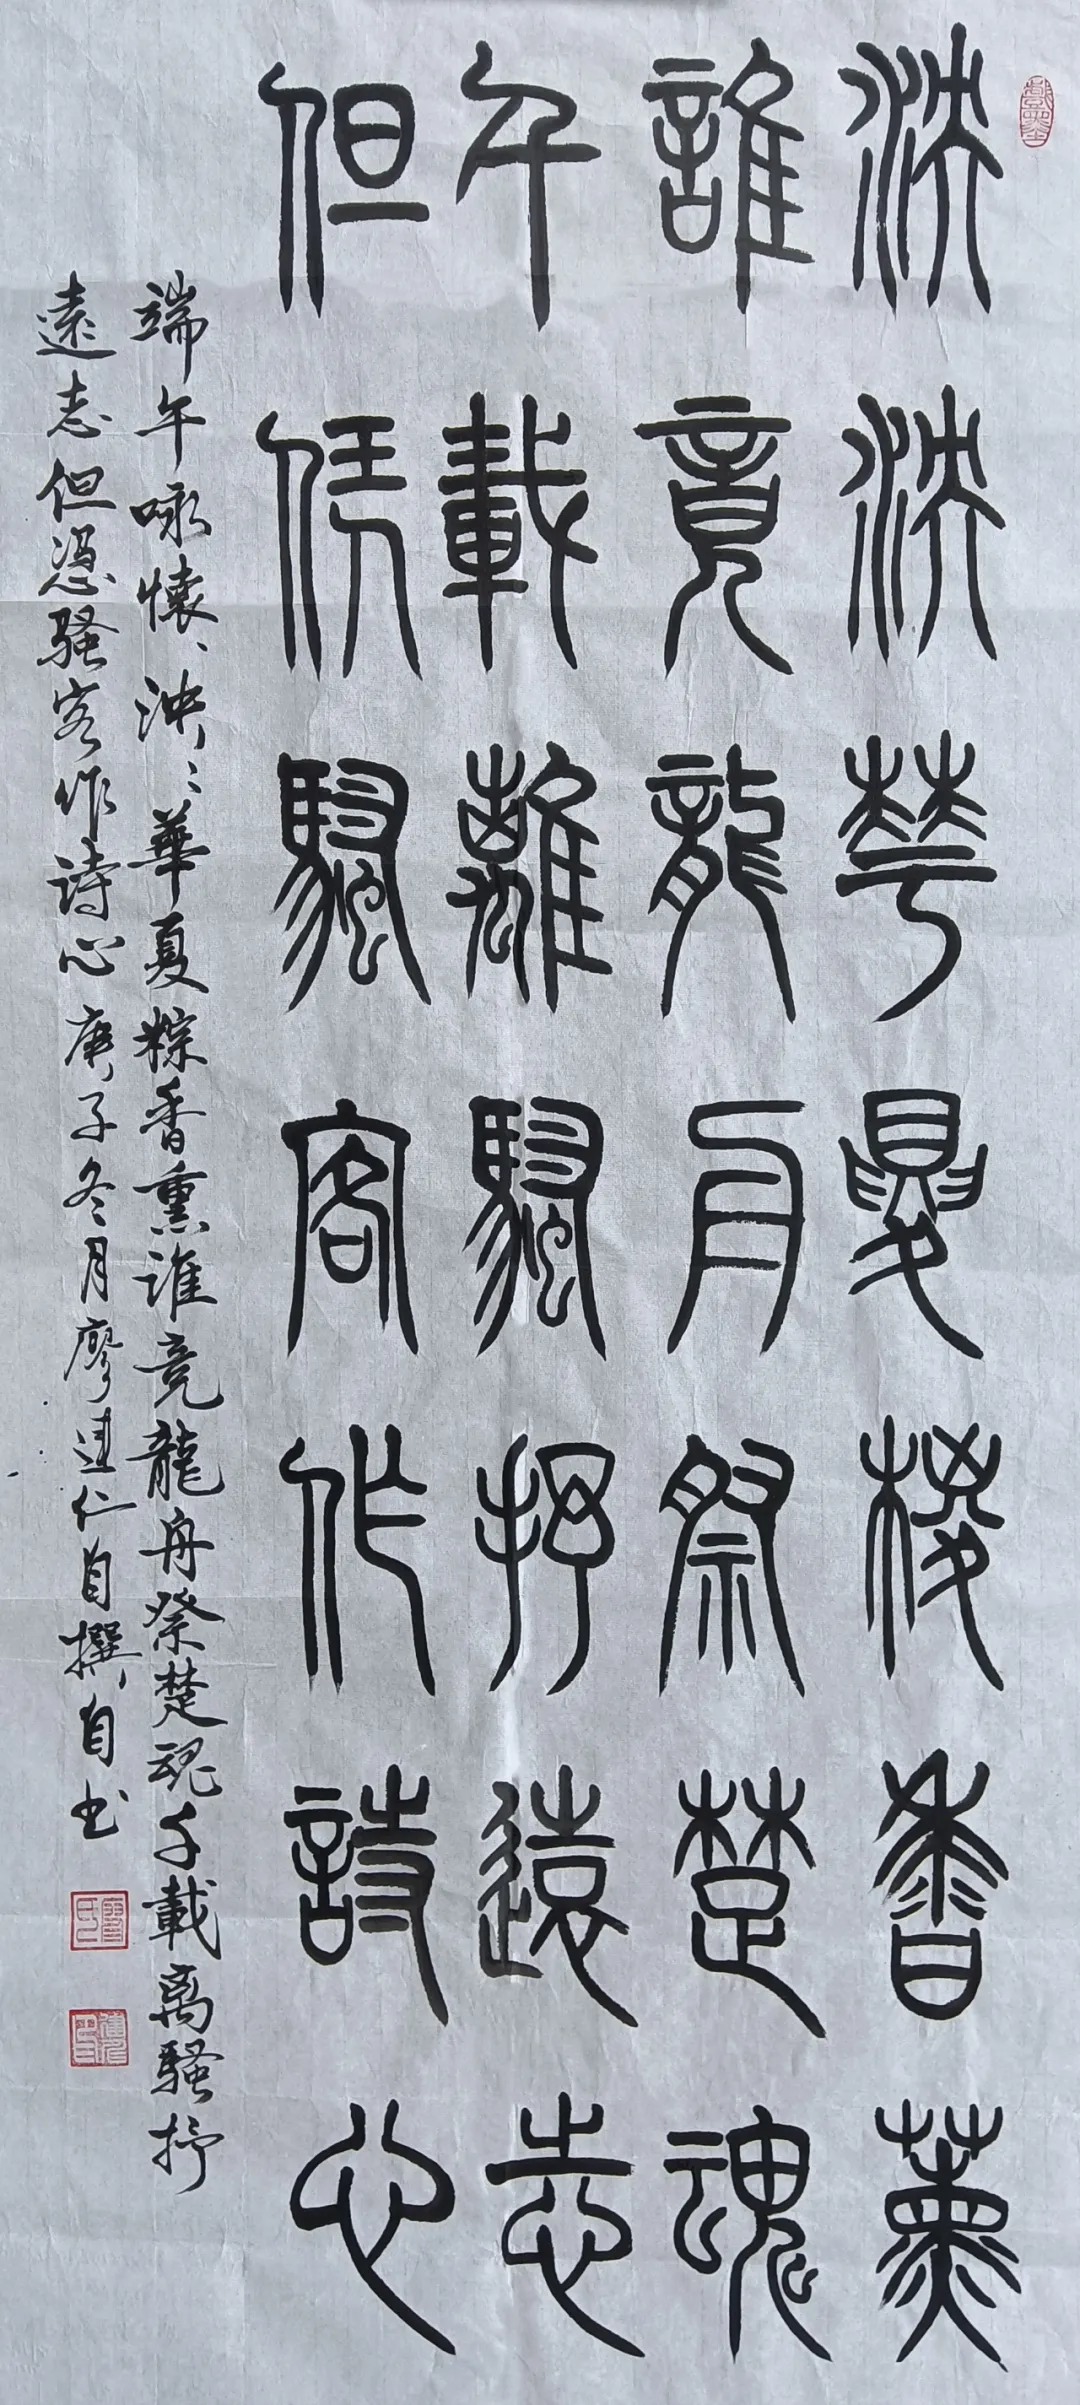 泱泱華夏椶香薰
誰竟龍舟祭楚魂
千載離騷抒遠志
但凭騷客作詩心
端午咏懷、泱、〻華夏粽香熏誰竞龍舟祭楚魂千載离騷抒
遠志但憑騷客作詩心庚子冬月廖達仁自撰自书